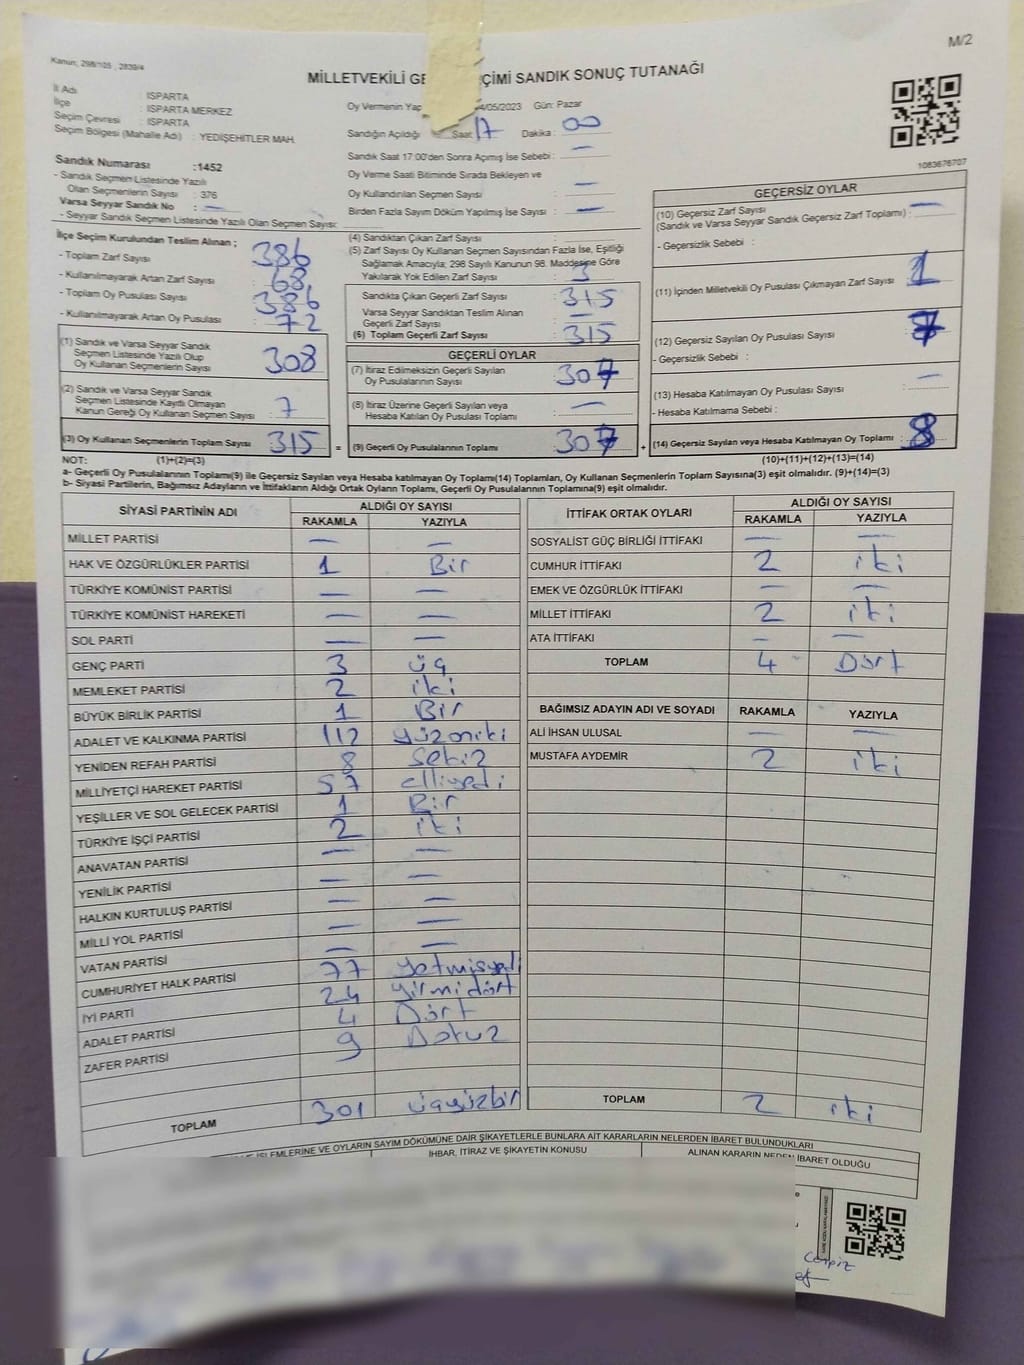 M/2
Kanun: 298/105 , 2839/4
MİLLETVEKİLİ GE ÇİMİ SANDIK SONUÇ TUTANAĞI
İl Adı : ISPARTA
İlçe : ISPARTA MERKEZ
Seçim Çevresi : ISPARTA
Seçim Bölgesi (Mahalle Adı) : YEDİŞEHİTLER MAH.
Sandık Numarası :1452
- Sandık Seçmen Listesinde Yazılı
Olan Seçmenlerin Sayısı : 376
Varsa Seyyar Sandık No : —
- Seyyar Sandık Seçmen Listesinde Yazılı Olan Seçmen Sayısı:
Oy Vermenin Yap 4/05/2023 Gün: Pazar
Sandığın Açıldığı Saat 17 Dakika : 00
Sandık Saat 17:00'den Sonra Açımış İse Sebebi : —
Oy Verme Saati Bitiminde Sırada Bekleyen ve
Oy Kullandırılan Seçmen Sayısı : —
Birden Fazla Sayım Döküm Yapılmış İse Sayısı : —
1083676707
İlçe Seçim Kurulundan Teslim Alınan ;
- Toplam Zarf Sayısı : 386
- Kullanılmayarak Artan Zarf Sayısı : 68
- Toplam Oy Pusulası Sayısı : 386
- Kullanılmayarak Artan Oy Pusulası : 72
(1) Sandık ve Varsa Seyyar Sandık
Seçmen Listesinde Yazılı Olup
Oy Kullanan Seçmenlerin Sayısı : 308
(2) Sandık ve Varsa Seyyar Sandık
Seçmen Listesinde Kayıtlı Olmayan
Kanun Gereği Oy Kullanan Seçmen Sayısı : 7
(3) Oy Kullanan Seçmenlerin Toplam Sayısı : 315
(4) Sandıktan Çıkan Zarf Sayısı :
(5) Zarf Sayısı Oy Kullanan Seçmen Sayısından Fazla İse, Eşitliği
Sağlamak Amacıyla; 298 Sayılı Kanunun 98. Maddesine Göre
Yakılarak Yok Edilen Zarf Sayısı : 3
Sandıkta Çıkan Geçerli Zarf Sayısı : 315
Varsa Seyyar Sandıktan Teslim Alınan
Geçerli Zarf Sayısı : —
(6) Toplam Geçerli Zarf Sayısı : 315
GEÇERLİ OYLAR
(7) İtiraz Edilmeksizin Geçerli Sayılan
Oy Pusulalarının Sayısı : 307
(8) İtiraz Üzerine Geçerli Sayılan veya
Hesaba Katılan Oy Pusulası Toplamı : —
= (9) Geçerli Oy Pusulalarının Toplamı : 307 +
GEÇERSİZ OYLAR
(10) Geçersiz Zarf Sayısı
(Sandık ve Varsa Seyyar Sandık Geçersiz Zarf Toplamı) : —
- Geçersizlik Sebebi :
(11) İçinden Milletvekili Oy Pusulası Çıkmayan Zarf Sayısı : 1
(12) Geçersiz Sayılan Oy Pusulası Sayısı : 7
- Geçersizlik Sebebi :
(13) Hesaba Katılmayan Oy Pusulası Sayısı : —
- Hesaba Katılmama Sebebi :
(14) Geçersiz Sayılan veya Hesaba Katılmayan Oy Toplamı : 8
NOT: (1)+(2)=(3) (10)+(11)+(12)+(13)=(14)
a- Geçerli Oy Pusulalarının Toplamı(9) ile Geçersiz Sayılan veya Hesaba katılmayan Oy Toplam(14) Toplamları, Oy Kullanan Seçmenlerin Toplam Sayısına(3) eşit olmalıdır. (9)+(14)=(3)
b- Siyasi Partilerin, Bağımsız Adayların ve İttifakların Aldığı Ortak Oyların Toplamı, Geçerli Oy Pusulalarının Toplamına(9) eşit olmalıdır.
SİYASİ PARTİNİN ADI ALDIĞI OY SAYISI
RAKAMLA YAZIYLA
MİLLET PARTİSİ — —
HAK VE ÖZGÜRLÜKLER PARTİSİ 1 Bir
TÜRKİYE KOMÜNİST PARTİSİ — —
TÜRKİYE KOMÜNİST HAREKETİ — —
SOL PARTİ — —
GENÇ PARTİ 3 üç
MEMLEKET PARTİSİ 2 iki
BÜYÜK BİRLİK PARTİSİ 1 Bir
ADALET VE KALKINMA PARTİSİ 112 yüzoniki
YENİDEN REFAH PARTİSİ 8 Sekiz
MİLLİYETÇİ HAREKET PARTİSİ 57 elliyedi
YEŞİLLER VE SOL GELECEK PARTİSİ 1 Bir
TÜRKİYE İŞÇİ PARTİSİ 2 iki
ANAVATAN PARTİSİ — —
YENİLİK PARTİSİ — —
HALKIN KURTULUŞ PARTİSİ — —
MİLLİ YOL PARTİSİ — —
VATAN PARTİSİ — —
CUMHURİYET HALK PARTİSİ 77 yetmişyedi
İYİ PARTİ 24 yirmidört
ADALET PARTİSİ 4 Dört
ZAFER PARTİSİ 9 Dokuz
TOPLAM 301 üçyüzbir
İTTİFAK ORTAK OYLARI ALDIĞI OY SAYISI
RAKAMLA YAZIYLA
SOSYALİST GÜÇ BİRLİĞİ İTTİFAKI — —
CUMHUR İTTİFAKI 2 iki
EMEK VE ÖZGÜRLÜK İTTİFAKI — —
MİLLET İTTİFAKI 2 iki
ATA İTTİFAKI — —
TOPLAM 4 Dört
BAĞIMSIZ ADAYIN ADI VE SOYADI RAKAMLA YAZIYLA
ALİ İHSAN ULUSAL — —
MUSTAFA AYDEMİR 2 iki
TOPLAM 2 iki
İŞLEMLERİNE VE OYLARIN SAYIM DÖKÜMÜNE DAİR ŞİKAYETLERLE BUNLARA AİT KARARLARIN NELERDEN İBARET BULUNDUKLARI
İHBAR, İTİRAZ VE ŞİKAYETİN KONUSU ALINAN KARARIN NEDEN İBARET OLDUĞU